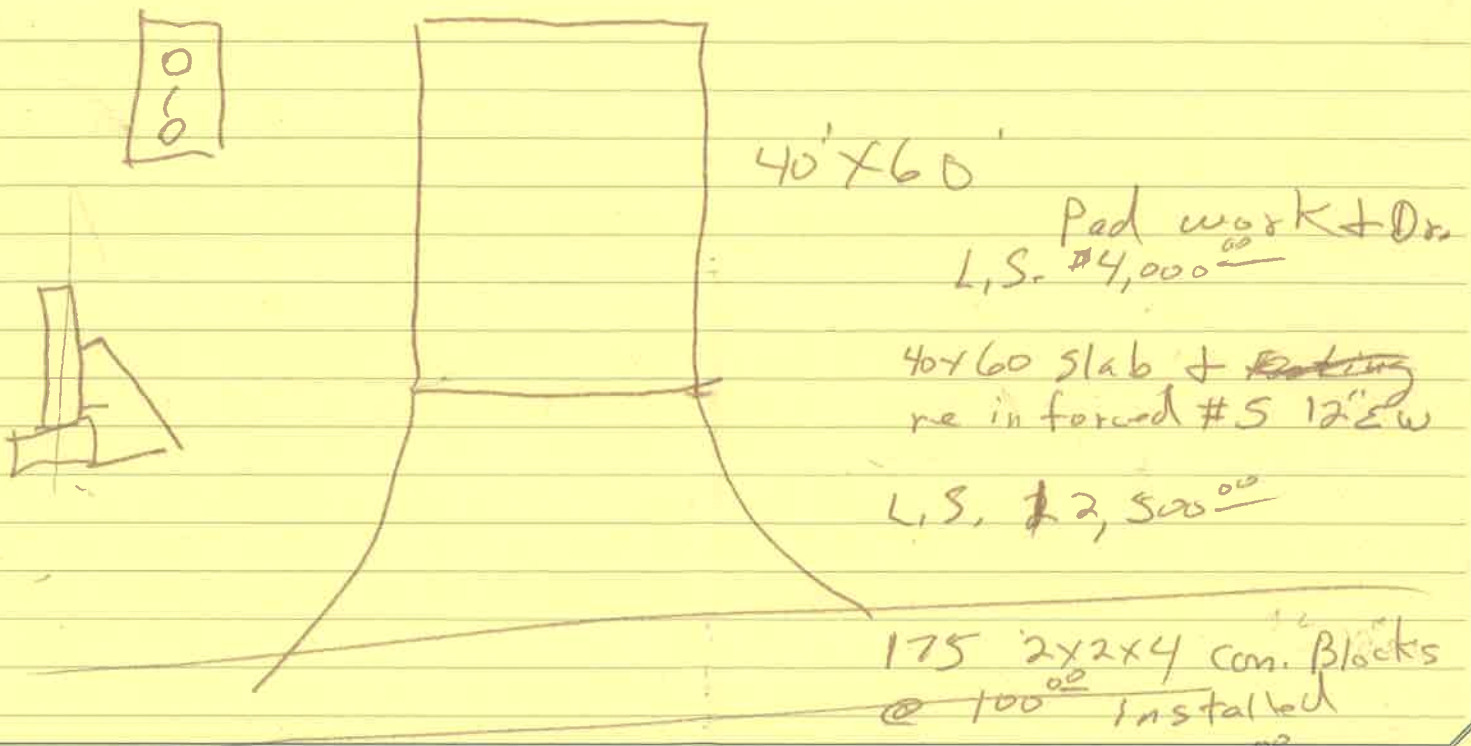 40' X 60'
Pad work + Dr.
L.S. $4,000.00
40x60 slab +
reinforced #5 12" EW
L.S. $2,500.00
175 2x2x4 con. Blocks
@ 100.00 installed